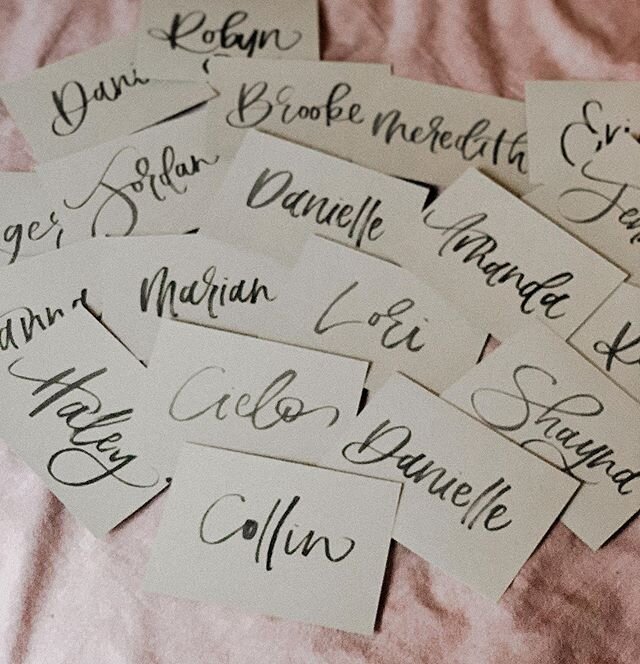 Robyn
Dani
Brooke
Meredith
Jordan
Danielle
Amanda
Marian
Lori
Haley
Cielo
Shayna
Danielle
Collin